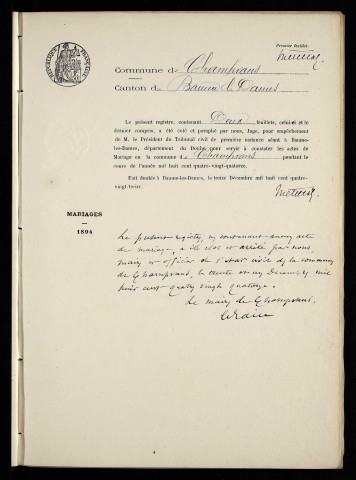 Premier feuillet.
Commune de Champvans
Canton de Baume les Dames
Le présent registre, contenant Deux feuillets, celui-ci et le
dernier compris, a été coté et paraphé par nous, Juge, pour empêchement
de M. le Président du Tribunal civil de première instance séant à Baume-
les-Dames, département du Doubs pour servir à constater les actes de
Mariage en la commune de Champvans pendant le
cours de l'année mil huit cent quatre-vingt-quatorze.
Fait double à Baume-les-Dames, le treize Décembre mil huit cent quatre-
vingt-treize.
MARIAGES
1894
Le présent registre, ne contenant aucun acte
de mariage, a été clos et arrêté par nous,
maire et officier de l'état civil de la commune
de Champvans, le trente et un Décembre mil
huit cent quatre vingt quatorze.
Le maire de Champvans,